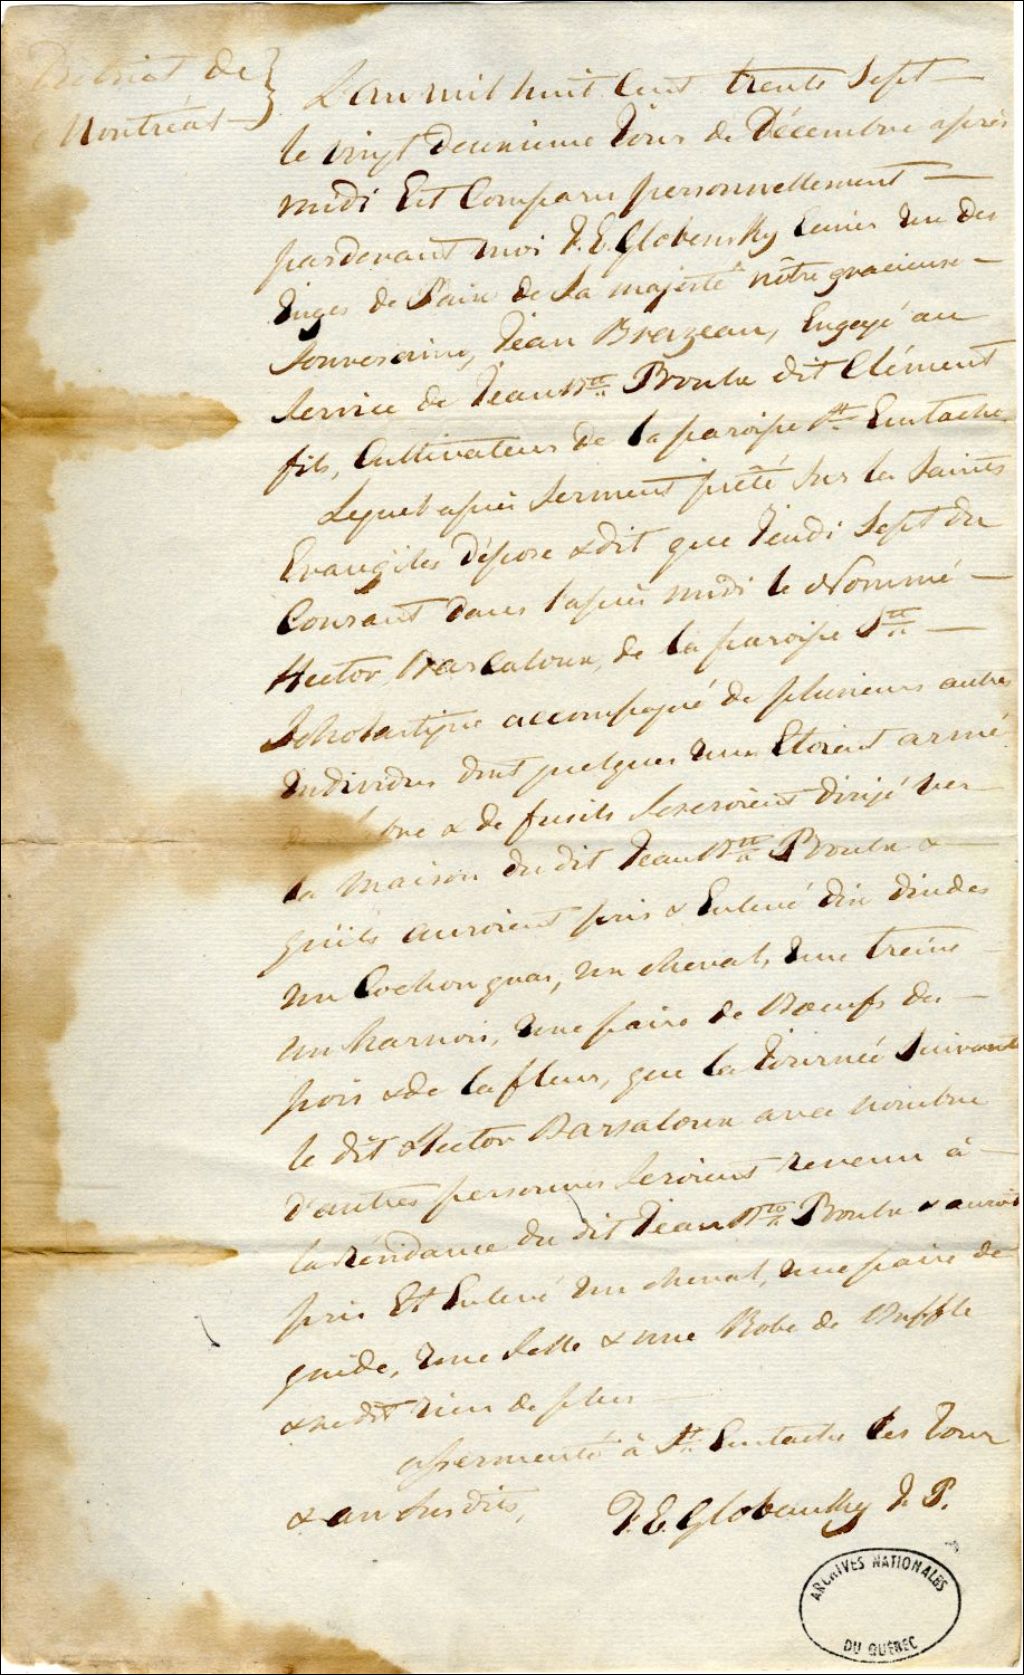 District de
Montréal
L'an mil huit Cent trente Sept
le vingt deuxieme Jour de Décembre après
midi Est Comparu personnellement
pardevant moi F. E. Globensky Ecuier un des
Juges de Paix de Sa majesté nôtre gracieuse
Souveraine, Jean Brazeau, Engagé au
Service de Jean Bte Proulx dit Clément
fils, Cultivateur de la paroisse St Eustache
Lequel après Serment prêté Sur les Saints
Evangiles dépose & dit que Jeudi Sept du
Courant dans l'après midi le Nommé
Hector Barcaloux, de la paroisse Ste
Scholastique accompagné de plusieurs autres
individus dont quelques uns Etoient armé
& de fusils Seseroient dirigé ver
la Maison du dit Jean Bte Proulx &
qu'ils auroient pris & Enlevé dix dindes
un Cochon gras, un cheval, une treine
un harnois, une paire de Bœufs des
pois & de la fleur, que la Journée Suivante
le dit Hector Barsaloux avec nombre
d'autres personnes Seroient revenu à
la Résidance du dit Jean Bte Proulx & auroit
pris Et Enlevé un cheval, une paire de
guide, une Selle & une Robe de Buffle
& ne dit rien de plus
assermenté à St Eustache les Jour
& an Susdits,
F. E. Globensky J. P.
ARCHIVES NATIONALES
DU QUÉBEC